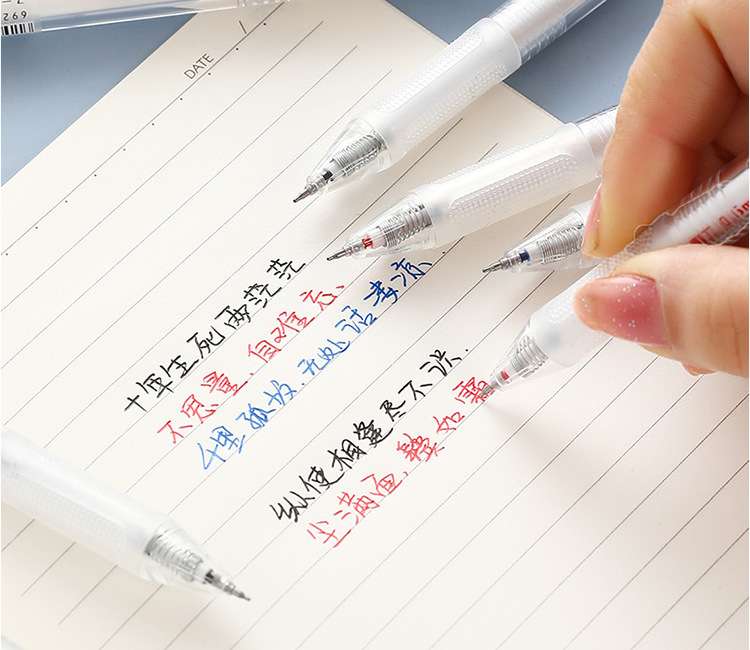 692
DATE /
十年生死两茫茫
不思量,自难忘
千里孤坟,无处话凄凉
纵使相逢尽不识.
尘满面,鬓如霜